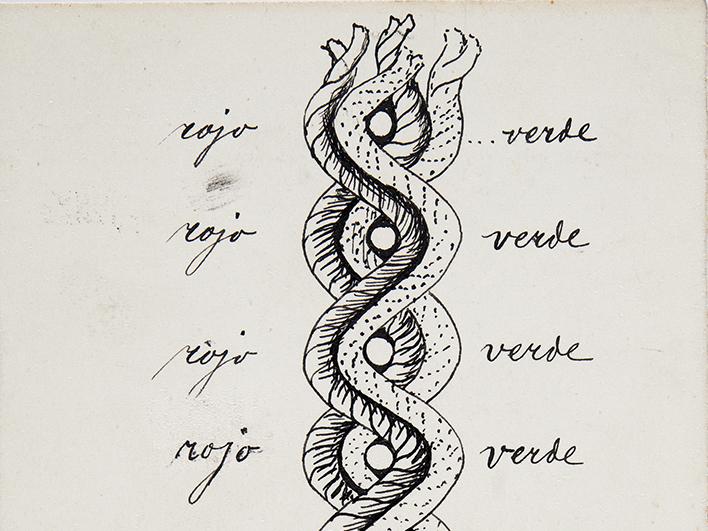 rojo ...verde
rojo verde
rojo verde
rojo verde